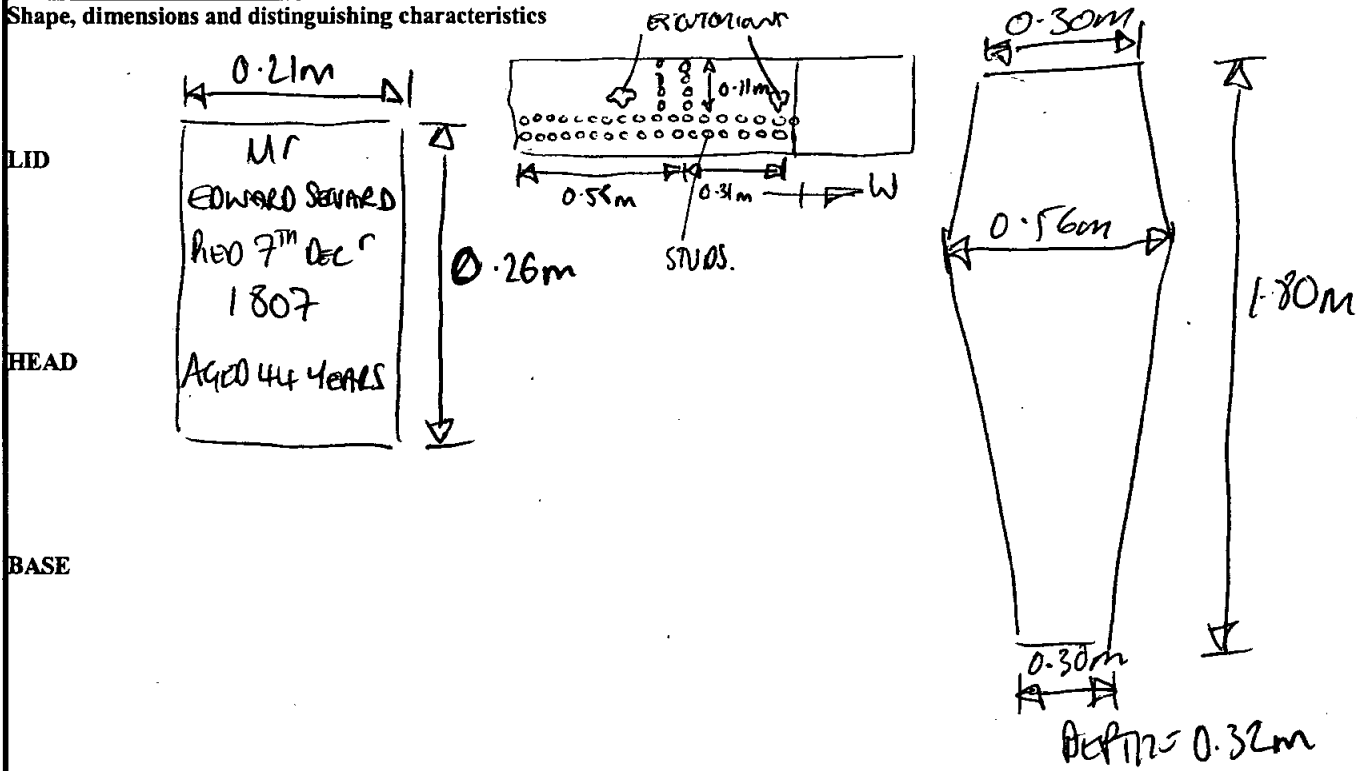 Shape, dimensions and distinguishing characteristics
LID
HEAD
BASE
0.21m
Mr
EDWARD
7TH DECr
1807
AGED 44 YEARS
0.26m
0.11m
0.31m
W
STUDS.
0.30m
0.56m
1.80m
0.30m
DEPTH = 0.32m